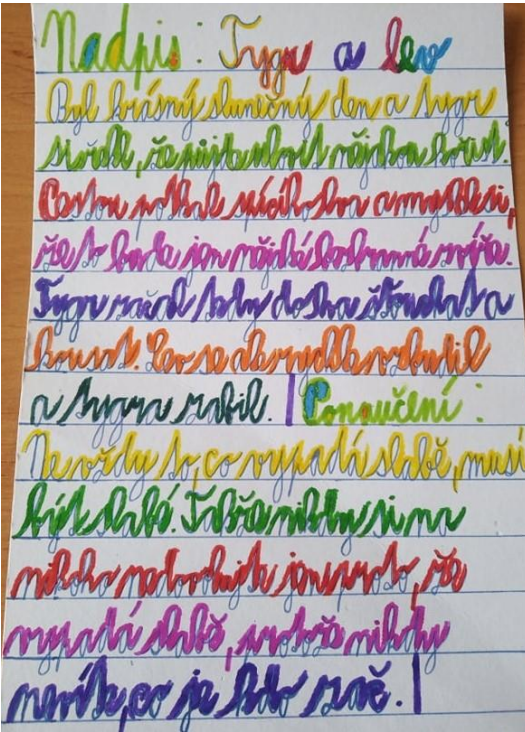 Nadpis: Tygr a lev
Byl krásný slunečný den a tygr
si řekl, že půjde ulovit nějakou kořist.
Cestou potkal spícího lva a myslel si,
že to bude jen nějaká bezbranná zvířa.
Tygr začal tedy do lva šťouchat a
kousat. Lev se ale rychle vzbudil
a tygra zabil. Ponaučení:
Ne vždy to, co vypadá slabě, musí
být slabé. Takže nikdy si na
nikoho nedovolujte jen proto, že
vypadá slabě, protože nikdy
nevíte, co je kdo zač.